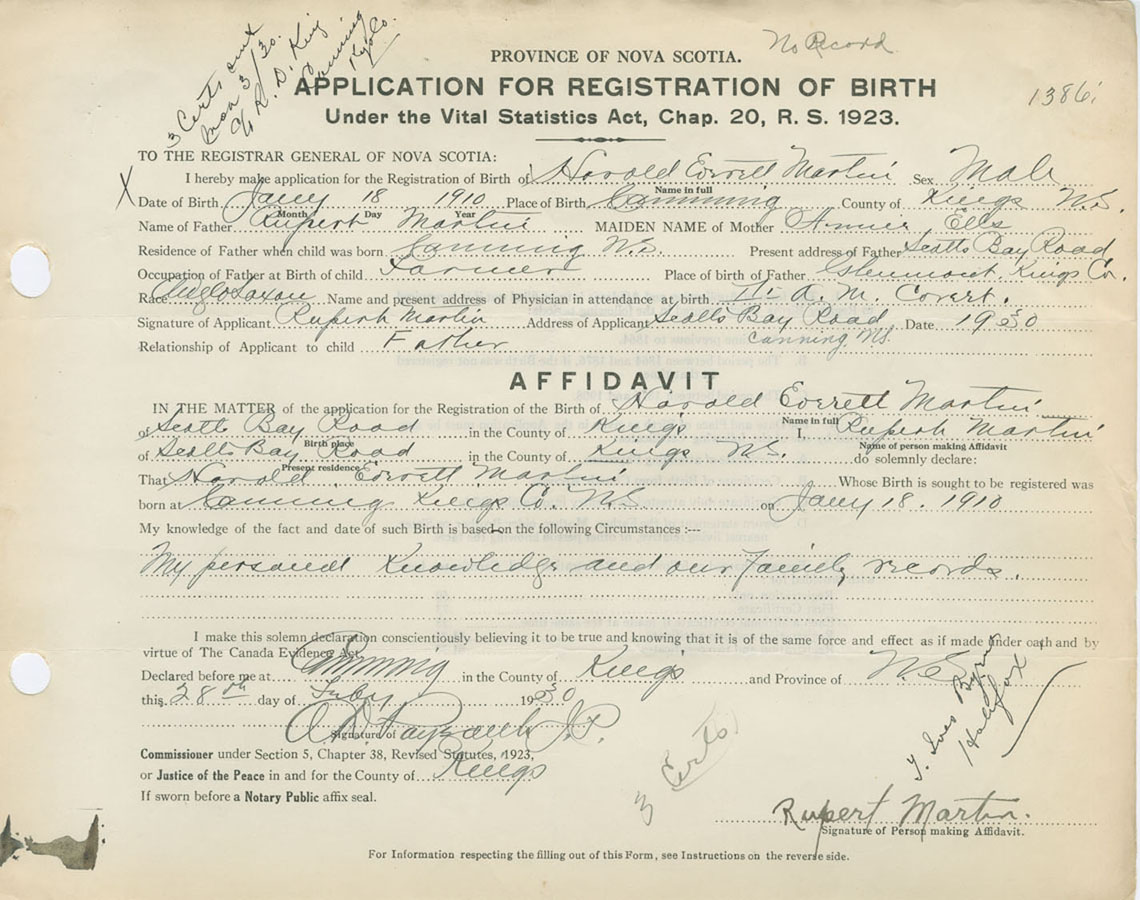 3 Certs sent
Mar 3/30.
c/o R. D. King
Canning
Kgs Co.
No Record
PROVINCE OF NOVA SCOTIA.
APPLICATION FOR REGISTRATION OF BIRTH
1386
Under the Vital Statistics Act, Chap. 20, R. S. 1923.
TO THE REGISTRAR GENERAL OF NOVA SCOTIA:
I hereby make application for the Registration of Birth of Harold Everett Martin Sex Male
Name in full
X Date of Birth Jany 18 1910 Place of Birth Canning County of Kings N.S.
Month Day Year
Name of Father Rupert Martin MAIDEN NAME of Mother Annie Ells
Residence of Father when child was born Canning N.S. Present address of Father Scotts Bay Road
Occupation of Father at Birth of child Farmer Place of birth of Father Glenmont, Kings Co.
Race Anglo Saxon Name and present address of Physician in attendance at birth Dr A. M. Covert.
Signature of Applicant Rupert Martin Address of Applicant Scotts Bay Road Date 1930
Canning NS.
Relationship of Applicant to child Father
AFFIDAVIT
IN THE MATTER of the application for the Registration of the Birth of Harold Everett Martin
Name in full
of Scotts Bay Road in the County of Kings I, Rupert Martin
Birth place Name of person making Affidavit
of Scotts Bay Road in the County of Kings NS. do solemnly declare:
Present residence
That Harold Everett Martin Whose Birth is sought to be registered was
born at Canning Kings Co. N.S. on Jany 18. 1910
My knowledge of the fact and date of such Birth is based on the following Circumstances :---
My personal Knowledge and our family records.
I make this solemn declaration conscientiously believing it to be true and knowing that it is of the same force and effect as if made under oath and by
virtue of The Canada Evidence Act.
Declared before me at Canning in the County of Kings and Province of N.S.
this 28th day of Feby 1930
Signature of J.P.
Commissioner under Section 5, Chapter 38, Revised Statutes, 1923,
or Justice of the Peace in and for the County of Kings
If sworn before a Notary Public affix seal.
3 Certs
Byrne
Halifax
Rupert Martin.
Signature of Person making Affidavit.
For Information respecting the filling out of this Form, see Instructions on the reverse side.